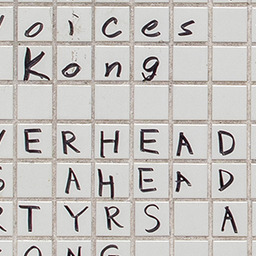 oices
Kong
ERHEAD
S AHEAD
RTYRS A
ONG